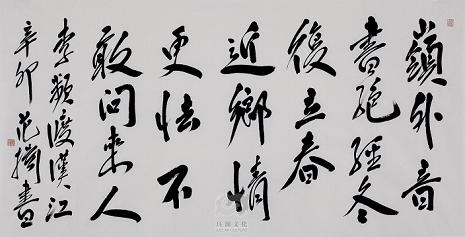 嶺外音
書絕經冬
復立春
近鄉情
更怯不
敢問來人
李頻渡漢江
辛卯范書